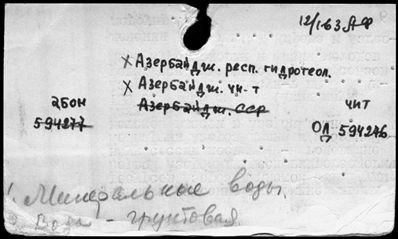 12/163 АФ
х Азербайдж. респ. гидрогеол.
х Азербайдж. ин-т
Азербайдж. ССР
абон чит
594277 ОЛ 594276
1. Минеральные воды.
2. Вода - грунтовая